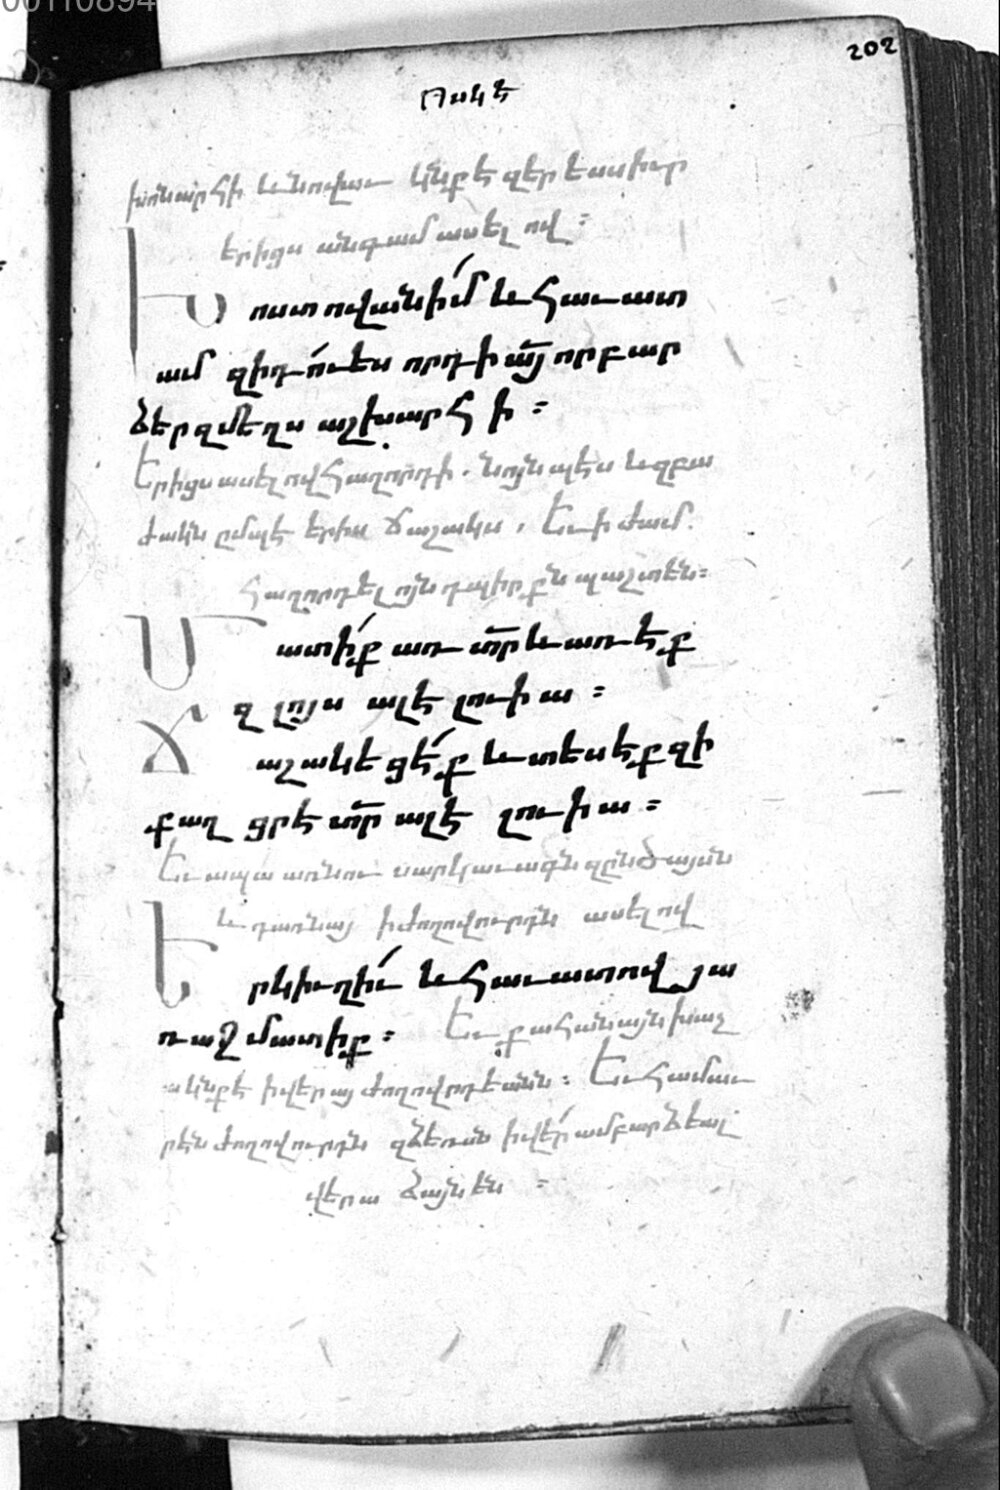 00110894
202
խոնարհի և նովաւ կնքէ զերեսսիւր
երիցս անգամ ասելով ։
Խոստովանիմ և հաւատ
ամ զիդուես որդի այ որբար
ձերզմեղս աշխարհի ։
Երիցս ասելով հաղորդի . նոյնպէս և զբա
ժակն ըմպէ երիս ճաշակս , Եւ ի ժամ
հաղորդելոյն դպիրքն պաշտեն ։
Մատիք առ տր և առէք
զլոյս ալէլուիա ։
Ճաշակեցէք և տեսէք զի
քաղցր է տր ալէլուիա ։
Եւ ապա առնու սարկաւագն զընծայսն
և դառնայ ի ժողովուրդն ասելով
Երկիւղիւ և հաւատով յա
ռաջ մատիք ։ Եւ քահանայն խաչ
ակնքէ ի վերայ ժողովրդեանն ։ Եւ համաւ
րէն ժողովուրդն զձեռսն ի վեր ամբարձեալ
վերա ձայնեն ։